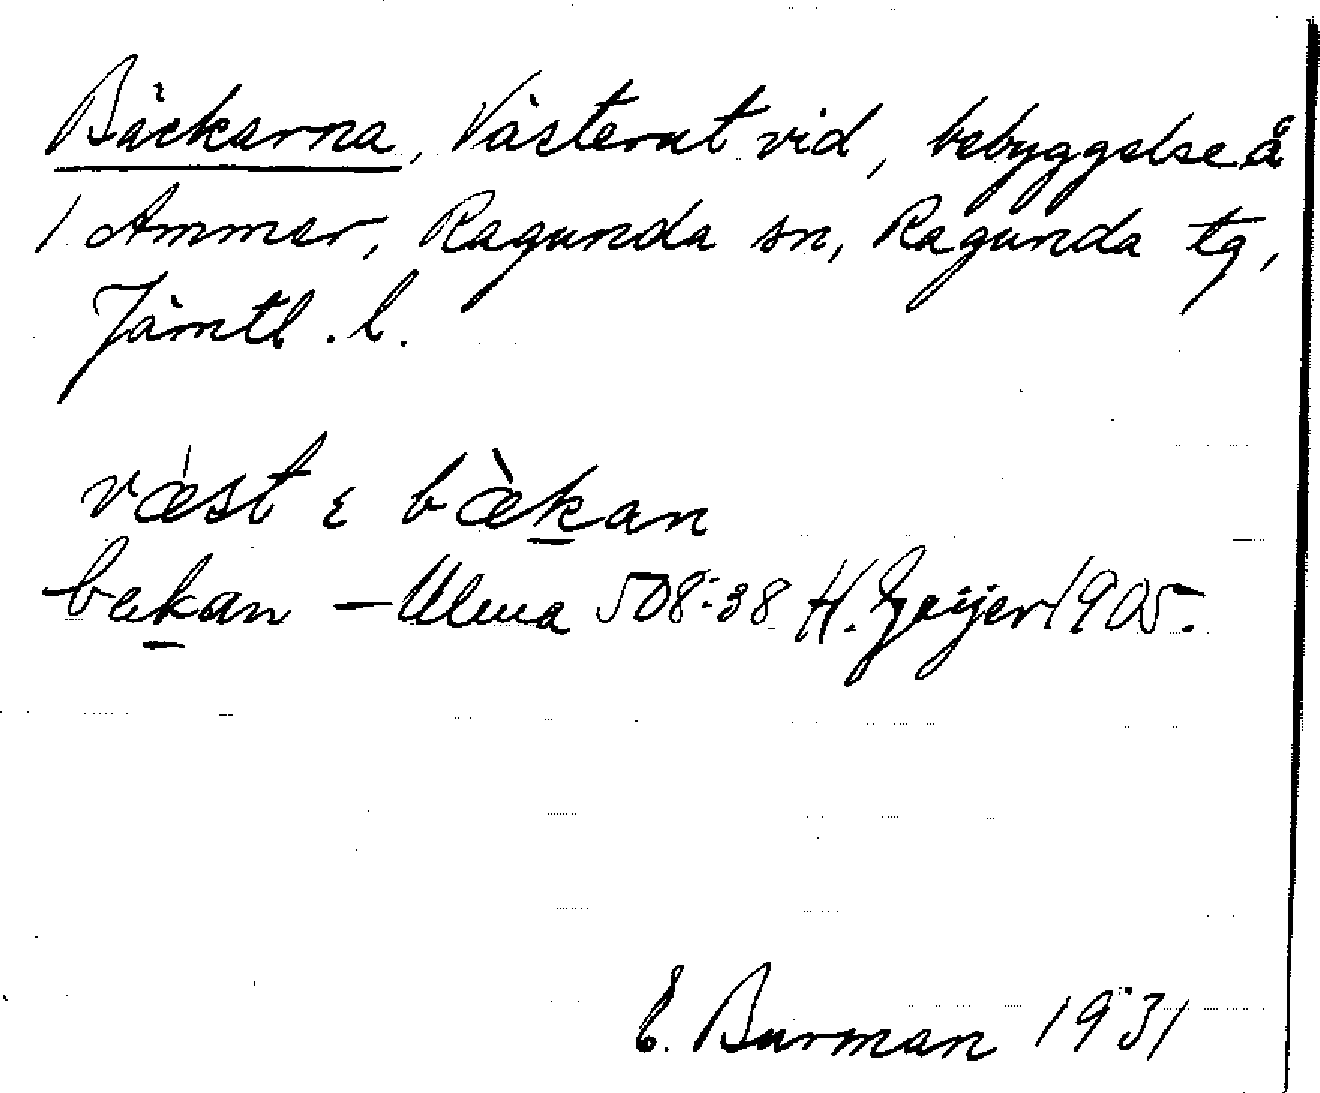 Bäckarna, Västerut vid, bebyggelse å
1 Ammer, Ragunda sn, Ragunda tg,
Jämtl. l.
væst ε bæ̀kan
bekan – Ulma 508:38 H. Geijer 1905.
E. Burman 1931